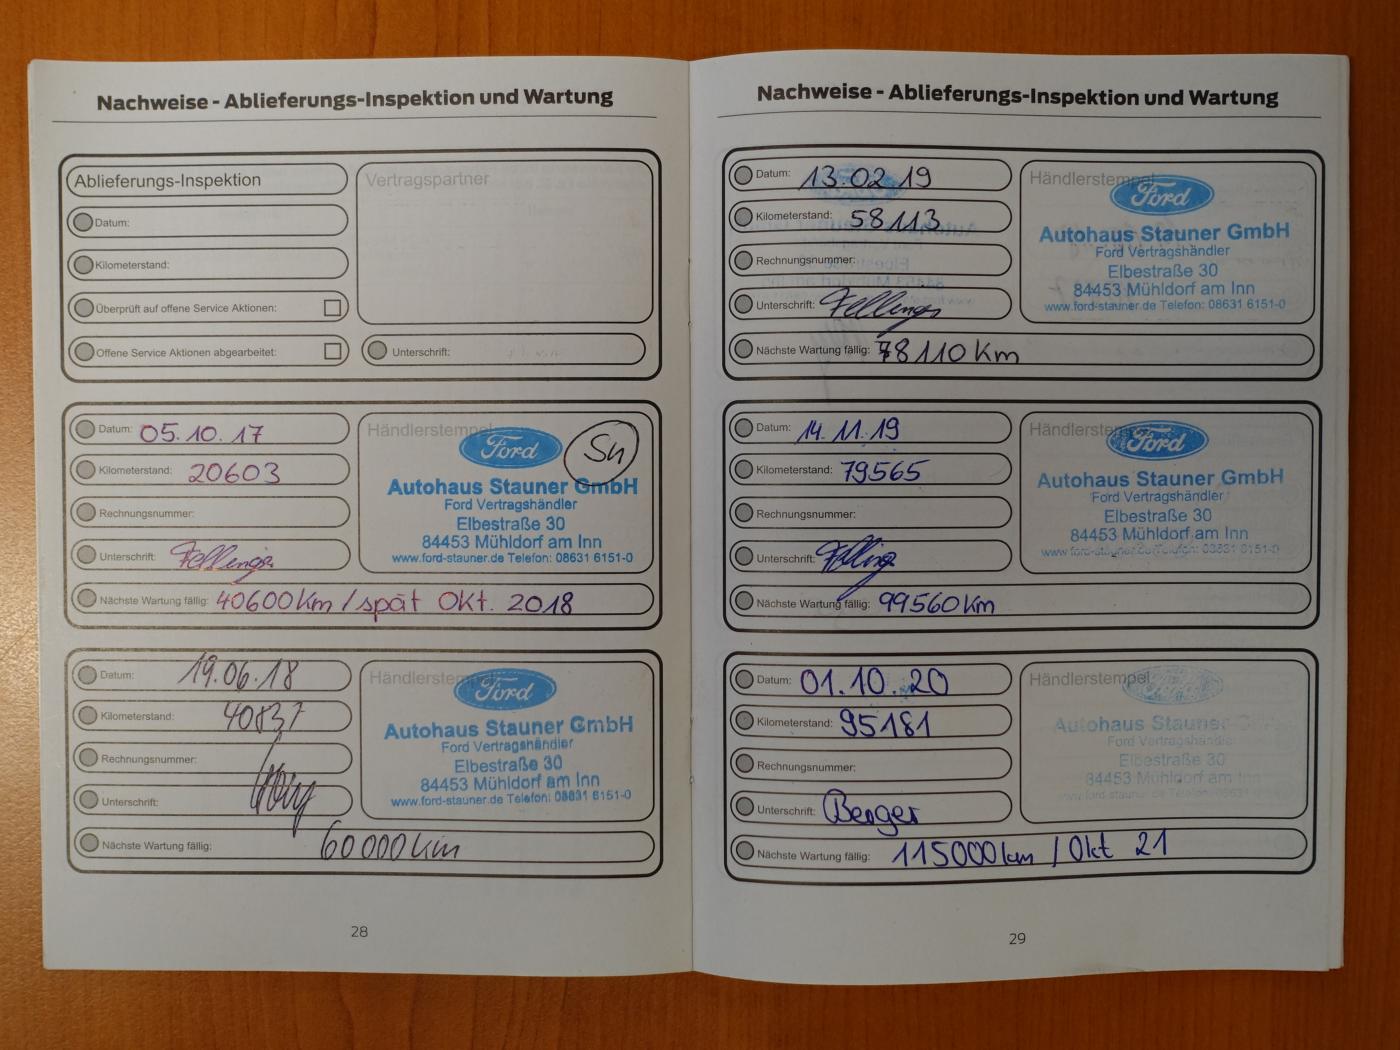 Nachweise - Ablieferungs-Inspektion und Wartung
Ablieferungs-Inspektion
Vertragspartner
Datum:
Kilometerstand:
Überprüft auf offene Service Aktionen:
Offene Service Aktionen abgearbeitet:
Unterschrift:
Datum: 05.10.17
Kilometerstand: 20603
Rechnungsnummer:
Unterschrift:
Nächste Wartung fällig: 40600km/spät Okt. 2018
Händlerstempel
Ford
Sh
Autohaus Stauner GmbH
Ford Vertragshändler
Elbestraße 30
84453 Mühldorf am Inn
www.ford-stauner.de Telefon: 08631 6151-0
Datum: 19.06.18
Kilometerstand: 40837
Rechnungsnummer:
Unterschrift:
Nächste Wartung fällig: 60000km
Händlerstempel
Ford
Autohaus Stauner GmbH
Ford Vertragshändler
Elbestraße 30
84453 Mühldorf am Inn
www.ford-stauner.de Telefon: 08631 6151-0
28
Nachweise - Ablieferungs-Inspektion und Wartung
Datum: 13.02.19
Kilometerstand: 58113
Rechnungsnummer:
Unterschrift:
Nächste Wartung fällig: 78110km
Händlerstempel
Ford
Autohaus Stauner GmbH
Ford Vertragshändler
Elbestraße 30
84453 Mühldorf am Inn
www.ford-stauner.de Telefon: 08631 6151-0
Datum: 14.11.19
Kilometerstand: 79565
Rechnungsnummer:
Unterschrift:
Nächste Wartung fällig: 99560km
Händlerstempel
Ford
Autohaus Stauner GmbH
Ford Vertragshändler
Elbestraße 30
84453 Mühldorf am Inn
www.ford-stauner.de Telefon: 08631 6151-0
Datum: 01.10.20
Kilometerstand: 95181
Rechnungsnummer:
Unterschrift: Berger
Nächste Wartung fällig: 115000km / Okt 21
Händlerstempel
Autohaus Stauner
Ford Vertragshändler
Elbestraße 30
84453 Mühldorf am Inn
www.ford-stauner.de Telefon: 08631 6151-0
29